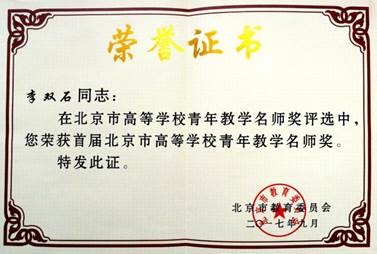 荣誉证书
李双石同志：
在北京市高等学校青年教学名师奖评选中，
您荣获首届北京市高等学校青年教学名师奖。
特发此证。
北京市教育委员会
二〇一七年九月